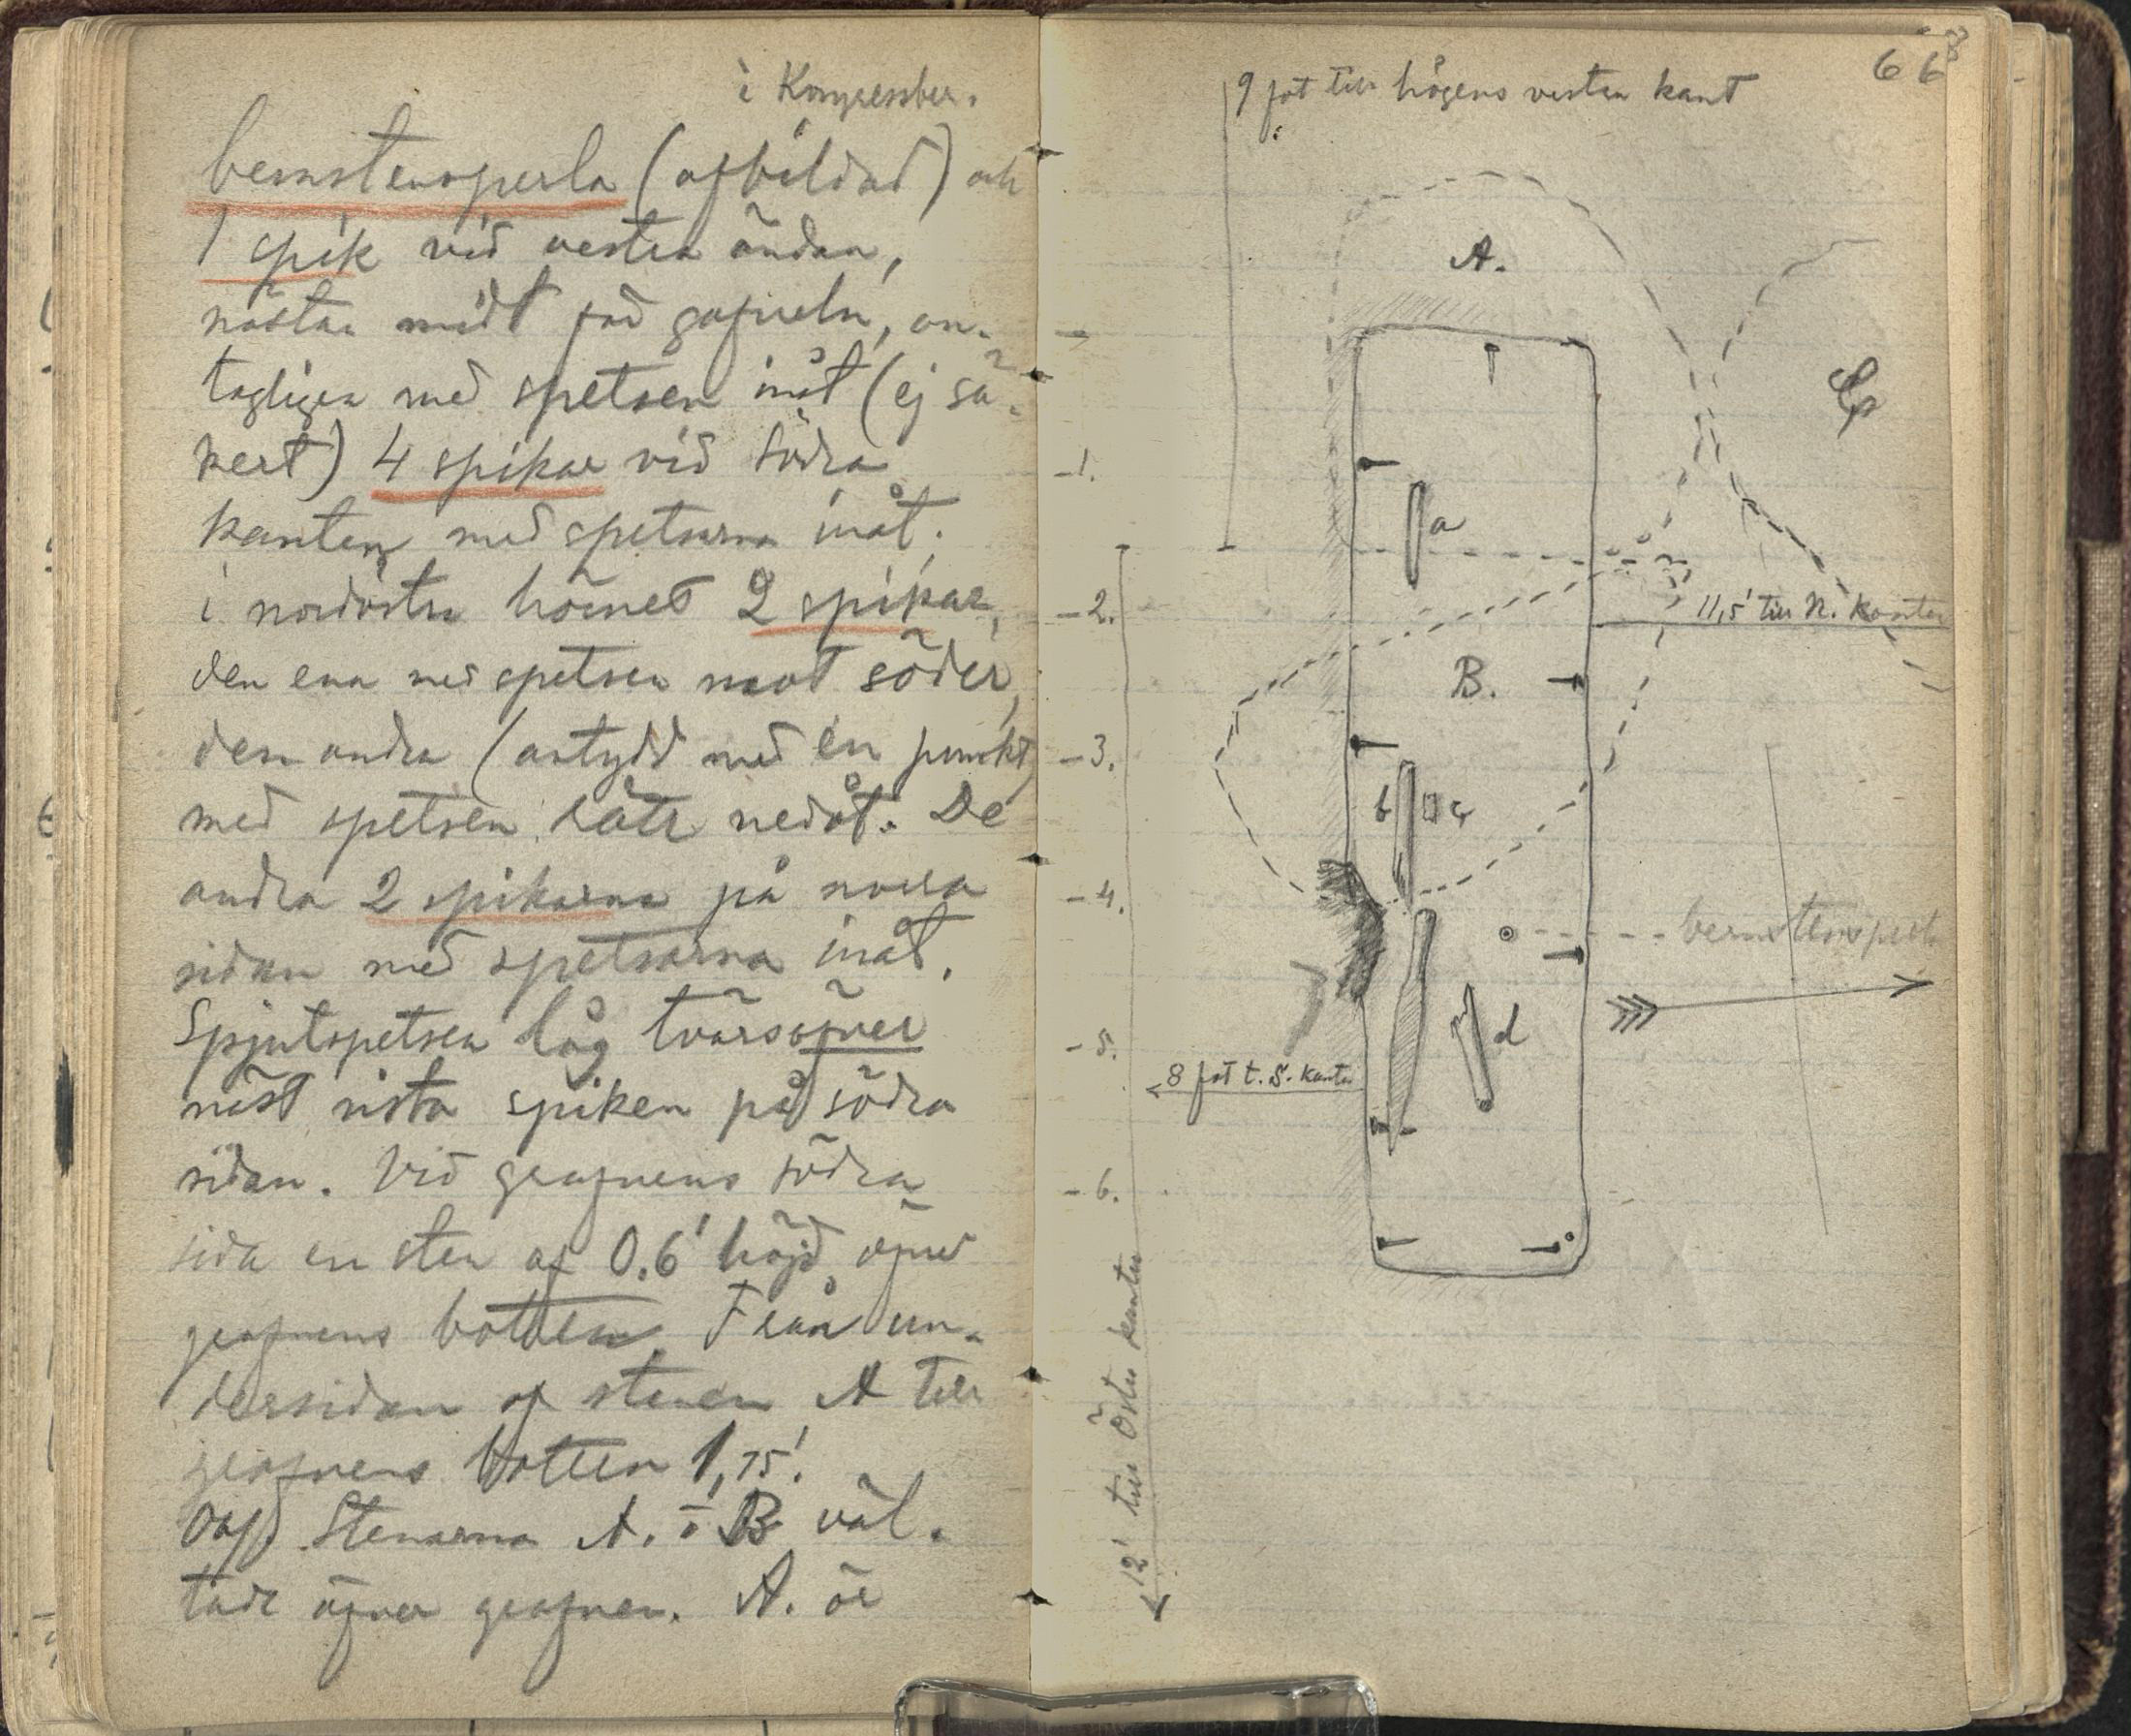 i Kongressber.
bernstensperla (afbildad) och
1 spik vid vestra ändan,
nästan midt på gafveln, an-
tagligen med spetsen inåt (ej sä-
kert) 4 spikar vid södra
kanten med spetsarna inåt;
i nordöstra hörnet 2 spikar,
den ena med spetsen mot söder,
den andra (antydd med en punkt)
med spetsen rätt nedåt. De
andra 2 spikarna på norra
sidan med spetsarna inåt.
Spjutspetsen låg tvärsöfver
näst sista spiken på södra
sidan. Vid grafvens södra
sida en sten af 0.6' höjd öfver
grafvens botten. Från un-
dersidan af stenen A till
grafvens botten 1,75'.
Obs! Stenarna A. o B väl-
tade öfver grafven. A. är
668
9 fot till högens vestra kant
A.
C
-1.
a
-2.
11,5' till N. kanten
B.
-3.
b
c
-4.
bernstensperla
d
-5.
8 fot t. S. kanten
-6.
12' till Östra kanten